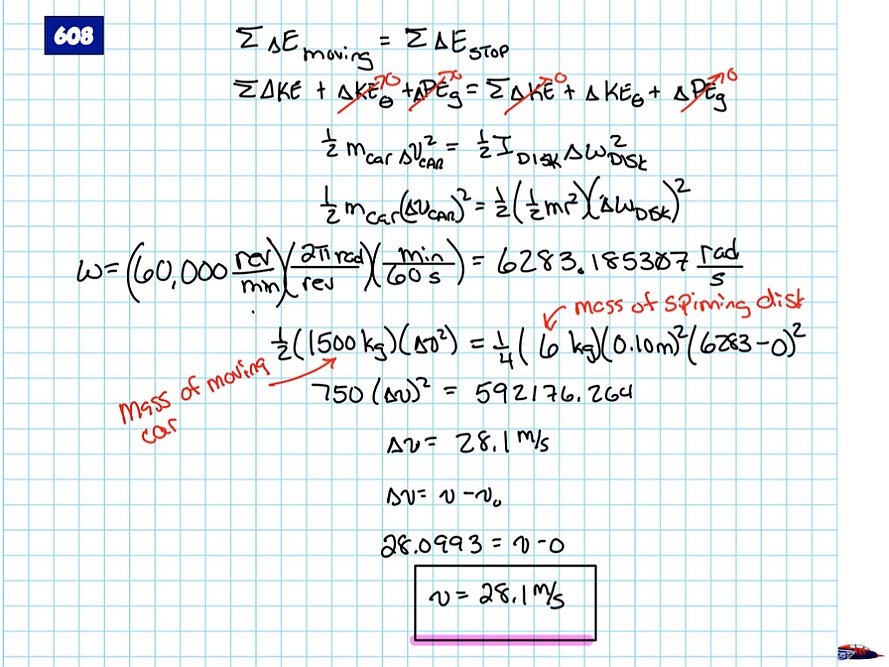 608
Σ ΔE moving = Σ ΔE STOP
Σ ΔKE + ΔKEθ→0 + ΔPEg→0 = Σ ΔKE→0 + ΔKEθ + ΔPEg→0
½ m car Δv²CAR = ½ I DISK Δω²DISK
½ m car (Δv CAR)² = ½ (½ mr²)(Δω DISK)²
ω = (60,000 rev/min)(2π rad/rev)(min/60 s) = 6283.185307 rad/s
mass of spinning disk
½ (1500 kg)(Δv²) = ¼ (6 kg)(0.10m)²(6283-0)²
mass of moving car
750 (Δv)² = 592176.264
Δv = 28.1 m/s
Δv = v - v₀
28.0993 = v - 0
v = 28.1 m/s